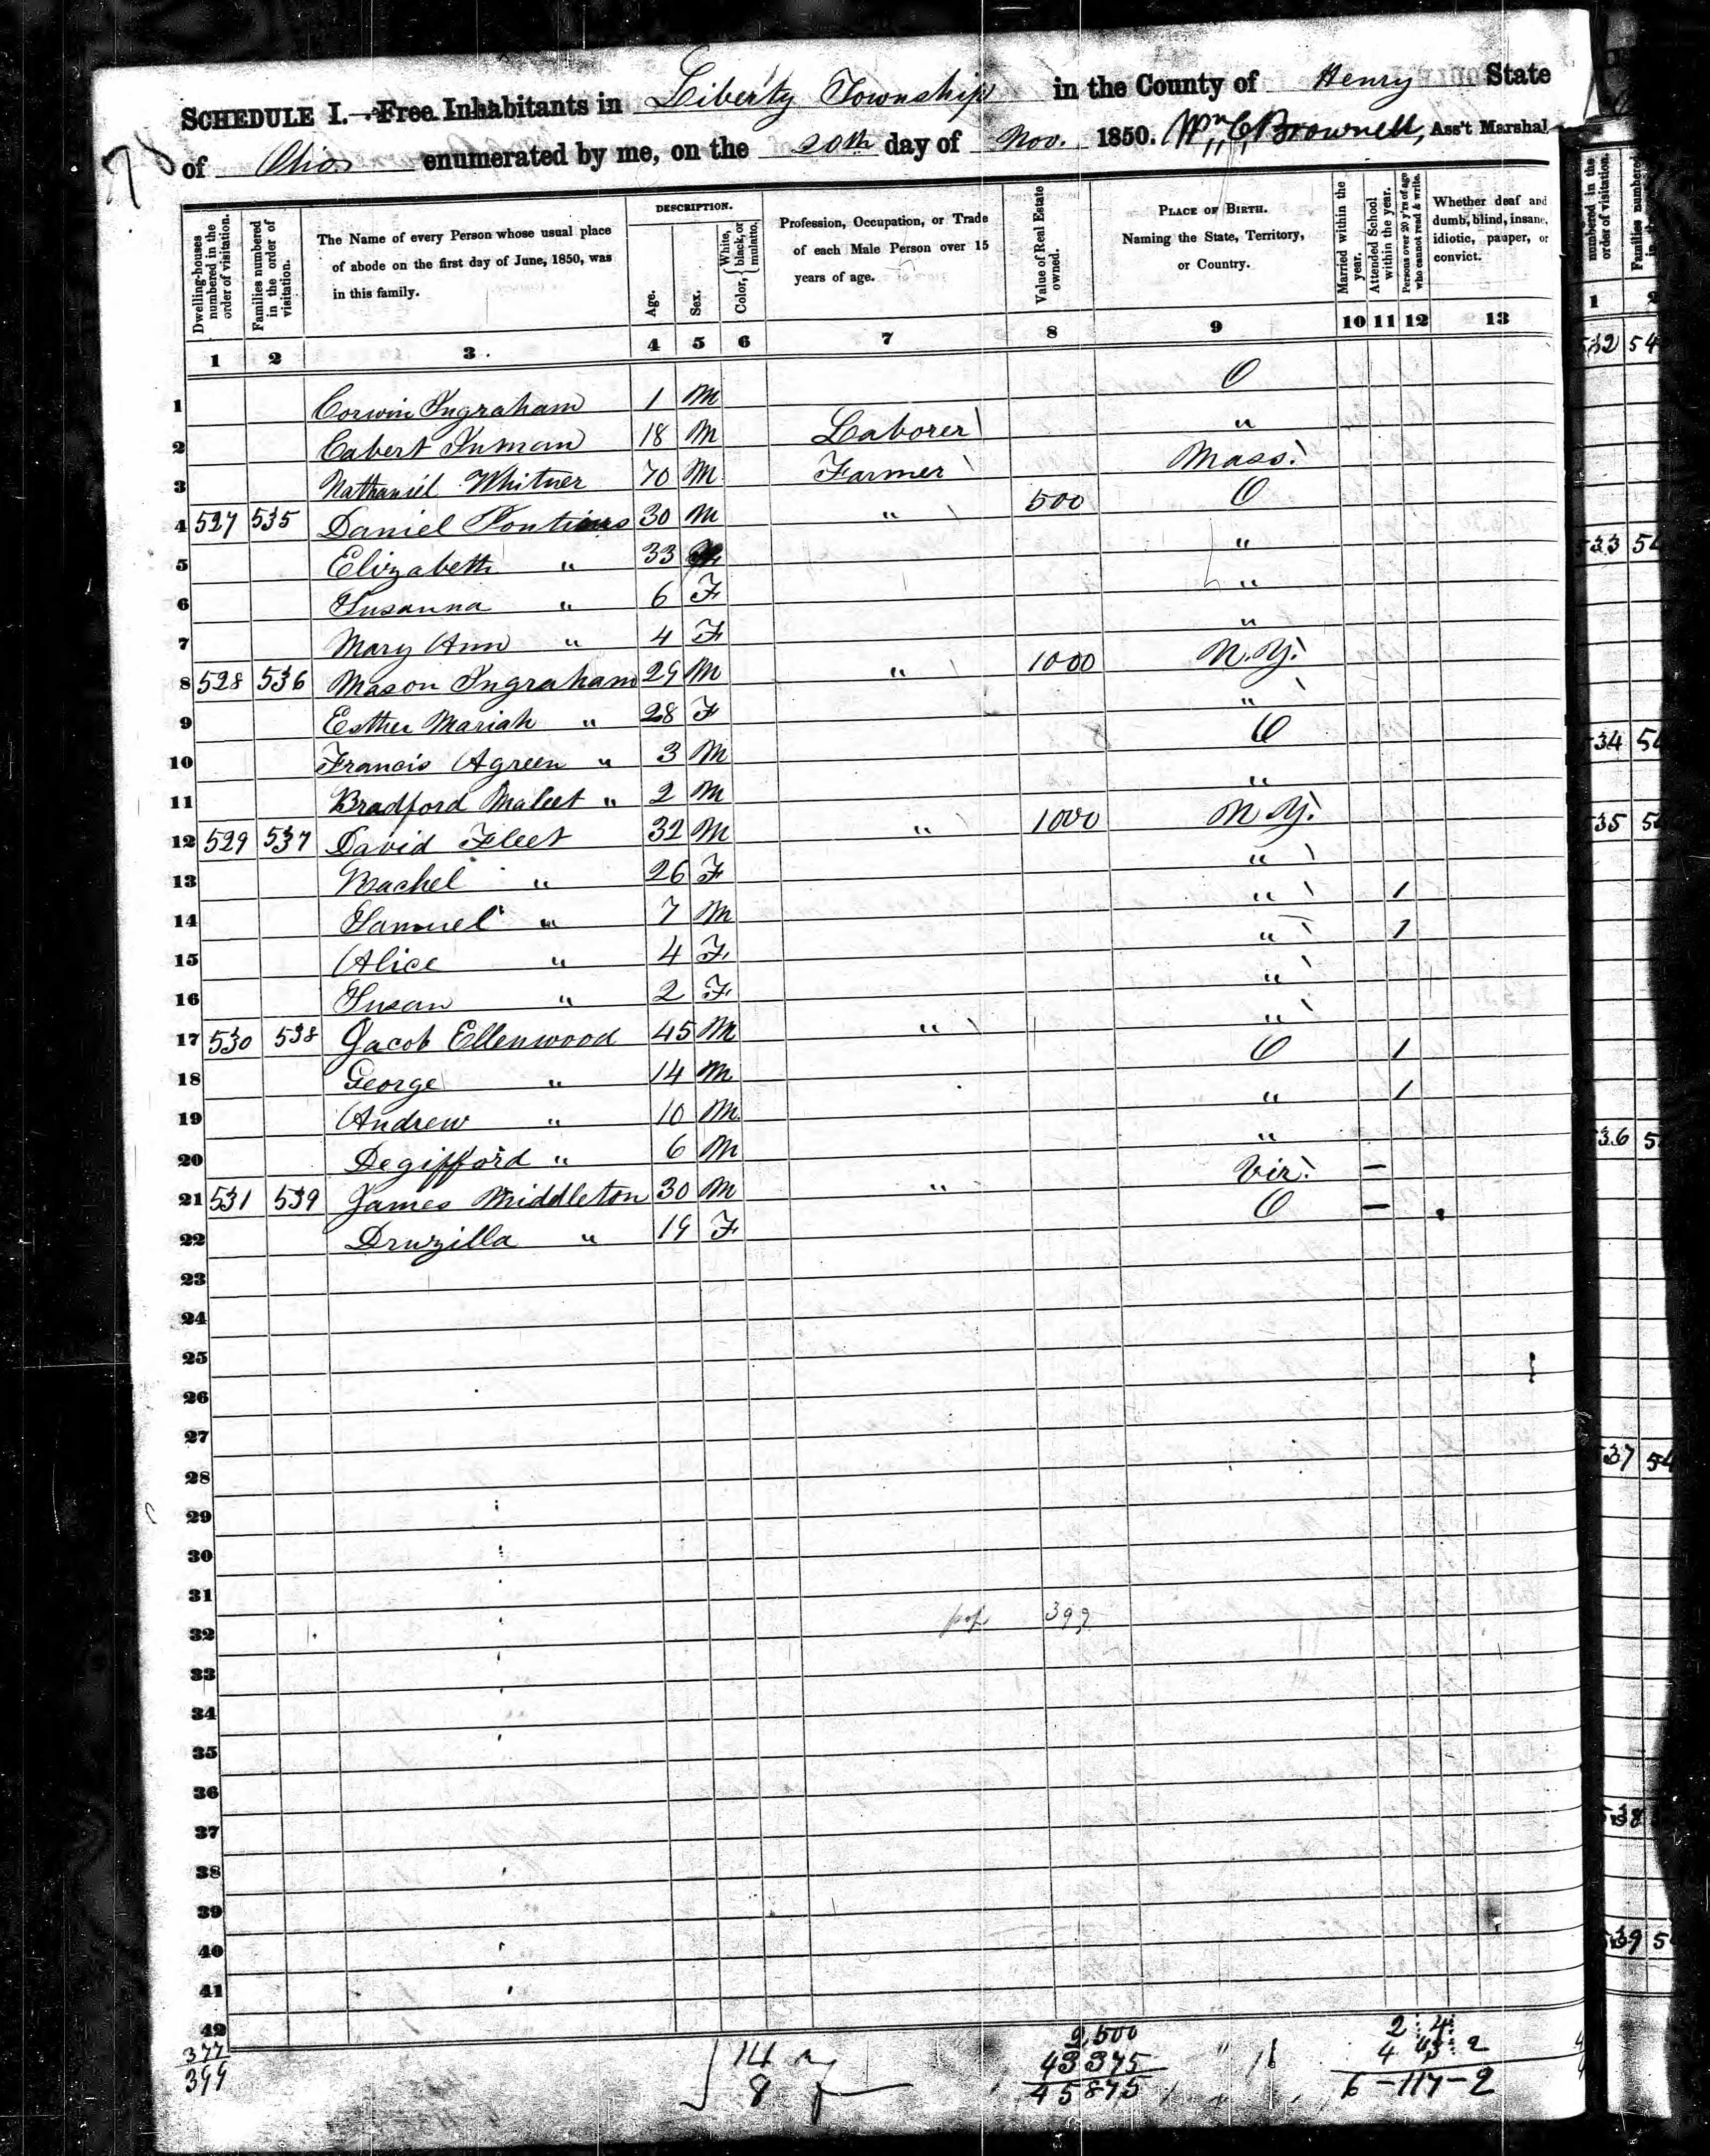 SCHEDULE I.—Free Inhabitants in Liberty Township in the County of Henry State
of Ohio enumerated by me, on the 20th day of Nov. 1850. Wm C. Brownell, Ass't Marshal
DESCRIPTION.
Dwelling-houses numbered in the order of visitation.
Families numbered in the order of visitation.
The Name of every Person whose usual place of abode on the first day of June, 1850, was in this family.
Age.
Sex.
Color, { White, black, or mulatto.
Profession, Occupation, or Trade of each Male Person over 15 years of age.
Value of Real Estate owned.
PLACE OF BIRTH. Naming the State, Territory, or Country.
Married within the year.
Attended School within the year.
Persons over 20 y'rs of age who cannot read & write.
Whether deaf and dumb, blind, insane, idiotic, pauper, or convict.
1 2 3 4 5 6 7 8 9 10 11 12 13
1 Corwin Ingraham 1 M O
2 Cabert Inman 18 M Laborer "
3 Nathaniel Whitner 70 M Farmer Mass.
4 527 535 Daniel Pontius 30 M " 500 O
5 Elizabeth " 33 "
6 Susanna " 6 F "
7 Mary Ann " 4 F "
8 528 536 Mason Ingraham 29 M " 1000 N.Y.
9 Esther Mariah " 28 F "
10 Francis Agreen " 3 M O
11 Bradford Maleet " 2 M "
12 529 537 David Fleet 32 M " 1000 N.Y.
13 Rachel " 26 F "
14 Samuel " 7 M " 1
15 Alice " 4 F " 1
16 Susan " 2 F "
17 530 538 Jacob Ellenwood 45 M " "
18 George " 14 M O 1
19 Andrew " 10 M " 1
20 Degifford " 6 M "
21 531 539 James Middleton 30 M " Vir. –
22 Druzilla " 19 F O –
23
24
25
26
27
28
29
30
31
32 pop 399
33
34
35
36
37
38
39
40
41
42
377
399
14 m
8 f
2,500
43375
45875
2 4
4 2
6 – 117 – 2
numbered in the order of visitation.
Families numbered
1 2
532 54
533 54
534 54
535 54
536 5
537 54
538
539 5